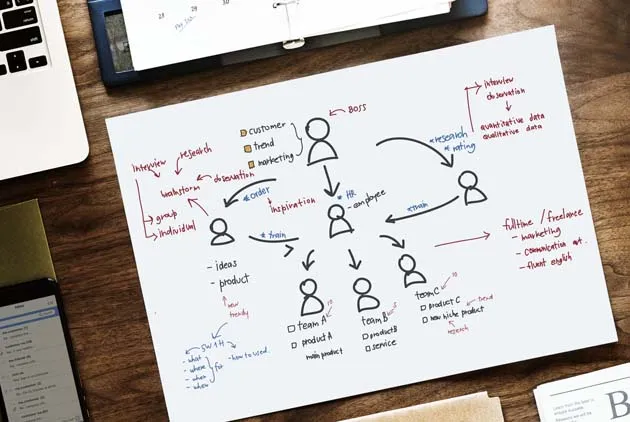 28
29
30
BOSS
customer
trend
marketing
interview
observation
quantitative data
qualitative data
*research
*rating
interview
research
observation
brainstorm
group
individual
*order
inspiration
* HR
- employee
*train
*train
- ideas
- product
new
trendy
5W1H
- what
- where
- when
for
- how to used.
fulltime / freelance
- marketing
- communication
- fluent english
team A
10
product A
main product
team B
5
product B
service
team C
10
product C
trend
new niche product
research
B